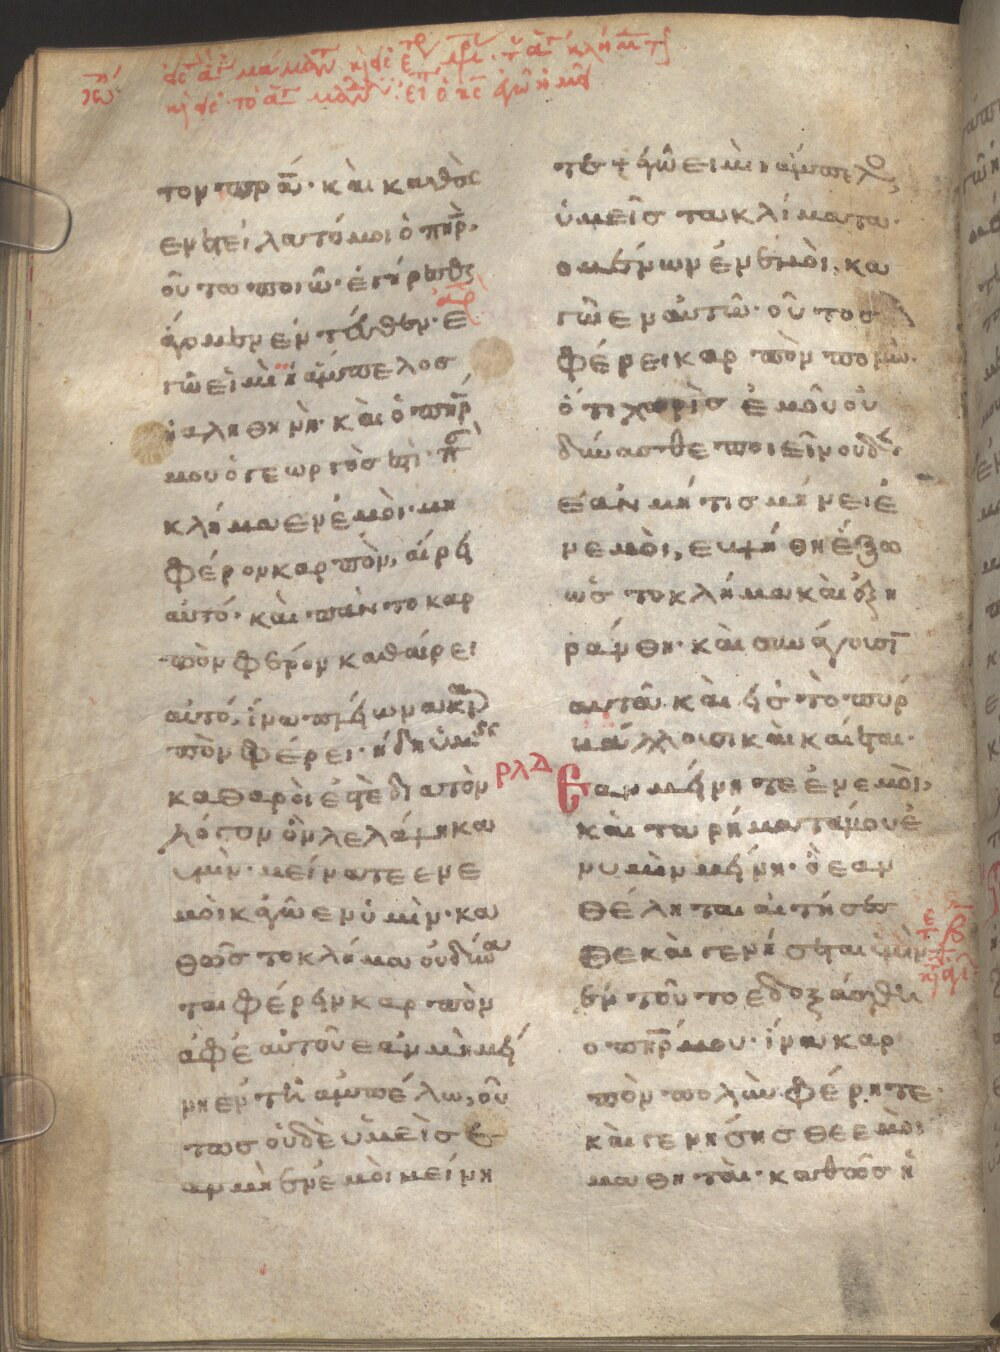 τον πρα· και καθὼς
ενετείλατό μοι ὁ πηρ·
οὕτω ποιῶ· ἐγείρεσθε
ἄγωμεν ἐντεῦθεν· Ε
γώ εἰμι ἡ ἄμπελος
ἡ αληθινὴ· καὶ ὁ πηρ
μου ὁ γεωργός ἐστι· πᾶν
κλήμα εν ἐμοὶ· μη
φέρον καρπὸν, αίρει
αυτό· καὶ πὰν το καρ
πὸν φέρον καθαίρει
αὐτό, ἵνα πλείωνα καρ
πὸν φέρει· ἤδη ὑμεῖς
καθαροὶ ἐστὲ διὰ τὸν
λόγον ὃν λελάληκα
υμὶν· μείνατε εν ε
μοὶ κἀγὼ εν ὑμὶν· κα
θὼς το κλήμα οὐ δύνα
ται φέρειν καρπὸν
ἀφ ἑαυτοῦ εὰν μὴ μεί
νη ἐν τῆ ἀμπέλω, οὕ
τως οὐδὲ ὑμεὶς ε
αν μὴ εν ἐμοὶ μείνη
τε + ἐγώ ειμι η ἄμπελος,
ὑμεῖς τα κλίματα·
ο μένων ἐν ἐμοὶ, κα
γὼ εν αὐτῶ· οὗτος
φέρει καρπὸν πολὺν·
ὅτι χωρὶς ἐμοῦ οὐ
δύνασθε ποιεῖν ουδέν·
εαν μή τις μήνει ἐ
ν εμοὶ, εβλήθη ἔξω
ὡς το κλήμα καὶ ἐξη
ράνθη· καὶ συνάγουσιν
αυτὰ καὶ εἰς τὸ πυρ
βάλλουσι καὶ καίεται·
ρλδ Εαν μείνητε ἐν εμοὶ,
καὶ τα ρήματά μου ἐ
ν υμὶν μείνη· ὃ εαν
θέλητε αιτήσασ
θε καὶ γενήσεται ὑμὶν
εν τούτο εδοξάσθη
ο πηρ μου· ἵνα καρ
πὸν πολὺν φέρητε
καὶ γενήσησθε ἐμοὶ
μαθηταὶ· καθὼς ἠ